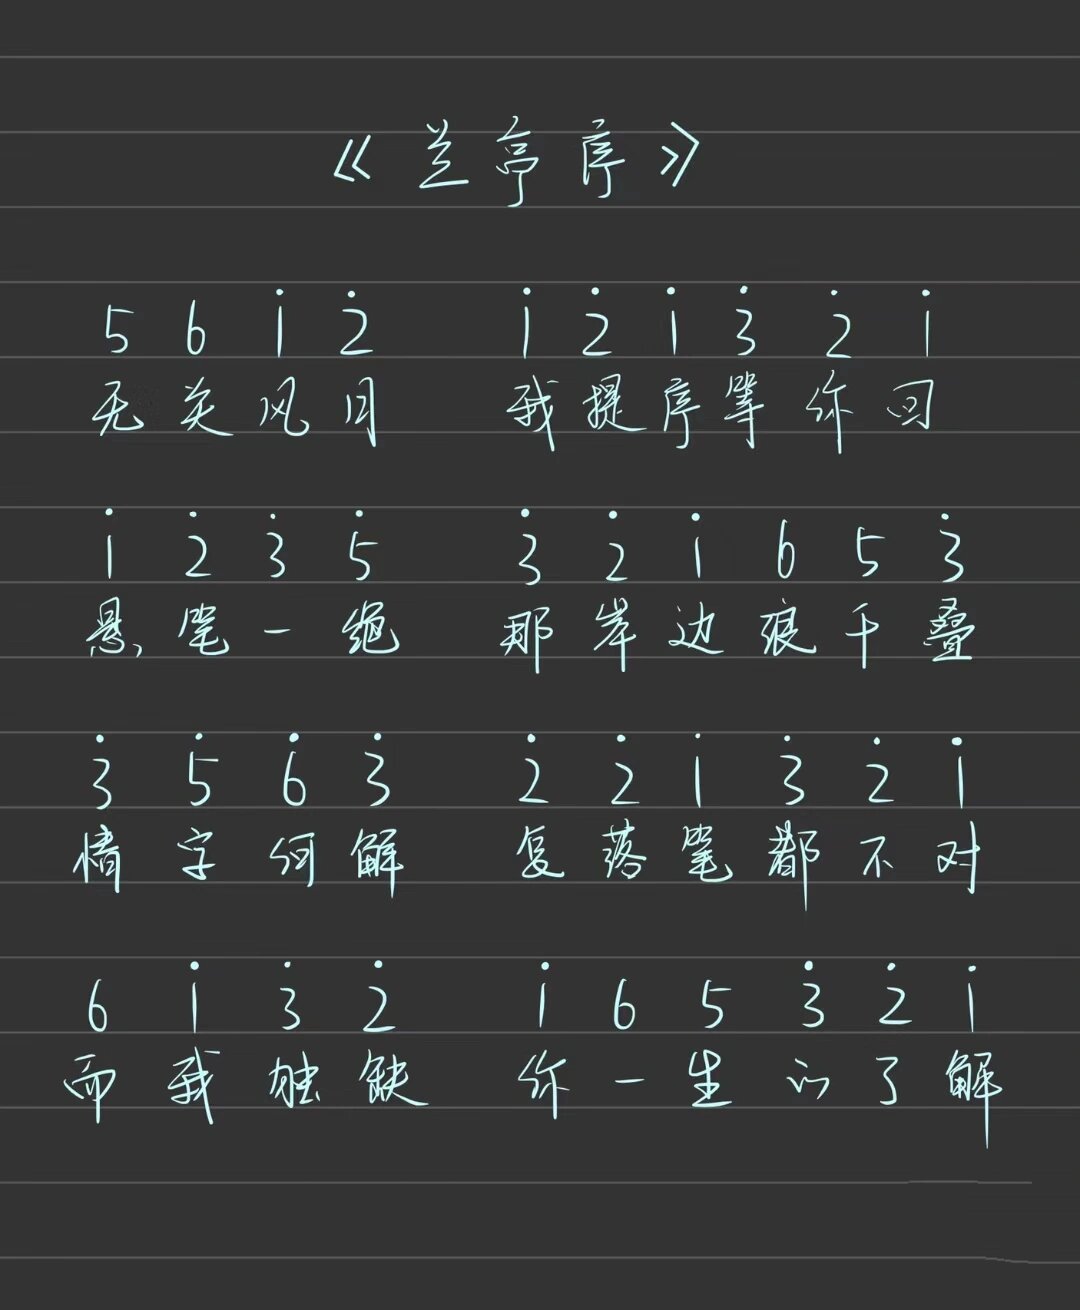 《兰亭序》
5 6 i̇ 2̇ i̇ 2̇ i̇ 3̇ 2̇ i̇
无关风月 我提序等你回
i̇ 2̇ 3̇ 5̇ 3̇ 2̇ i̇ 6 5 3̇
悬笔一绝 那岸边浪千叠
3̇ 5̇ 6̇ 3̇ 2̇ 2̇ i̇ 3̇ 2̇ i̇
情字何解 怎落笔都不对
6 i̇ 3̇ 2̇ i̇ 6 5 3̇ 2̇ i̇
而我独缺 你一生的了解